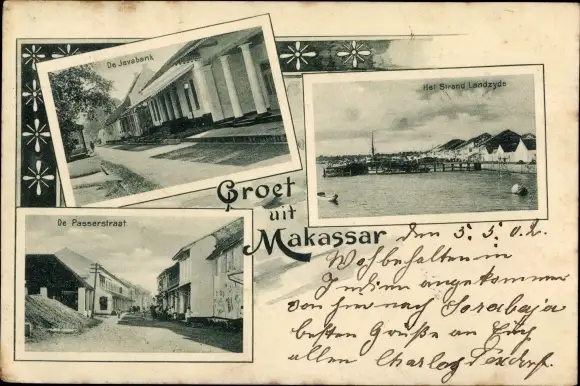 De Javabank
Het Strand Landzyde
Groet
uit
Makassar
De Passerstraat
den 5. 5. 02.
Wohbehalten in
Indien angekommen
von hier nach Sorabaja
besten Grüße an Euch
allen Charles